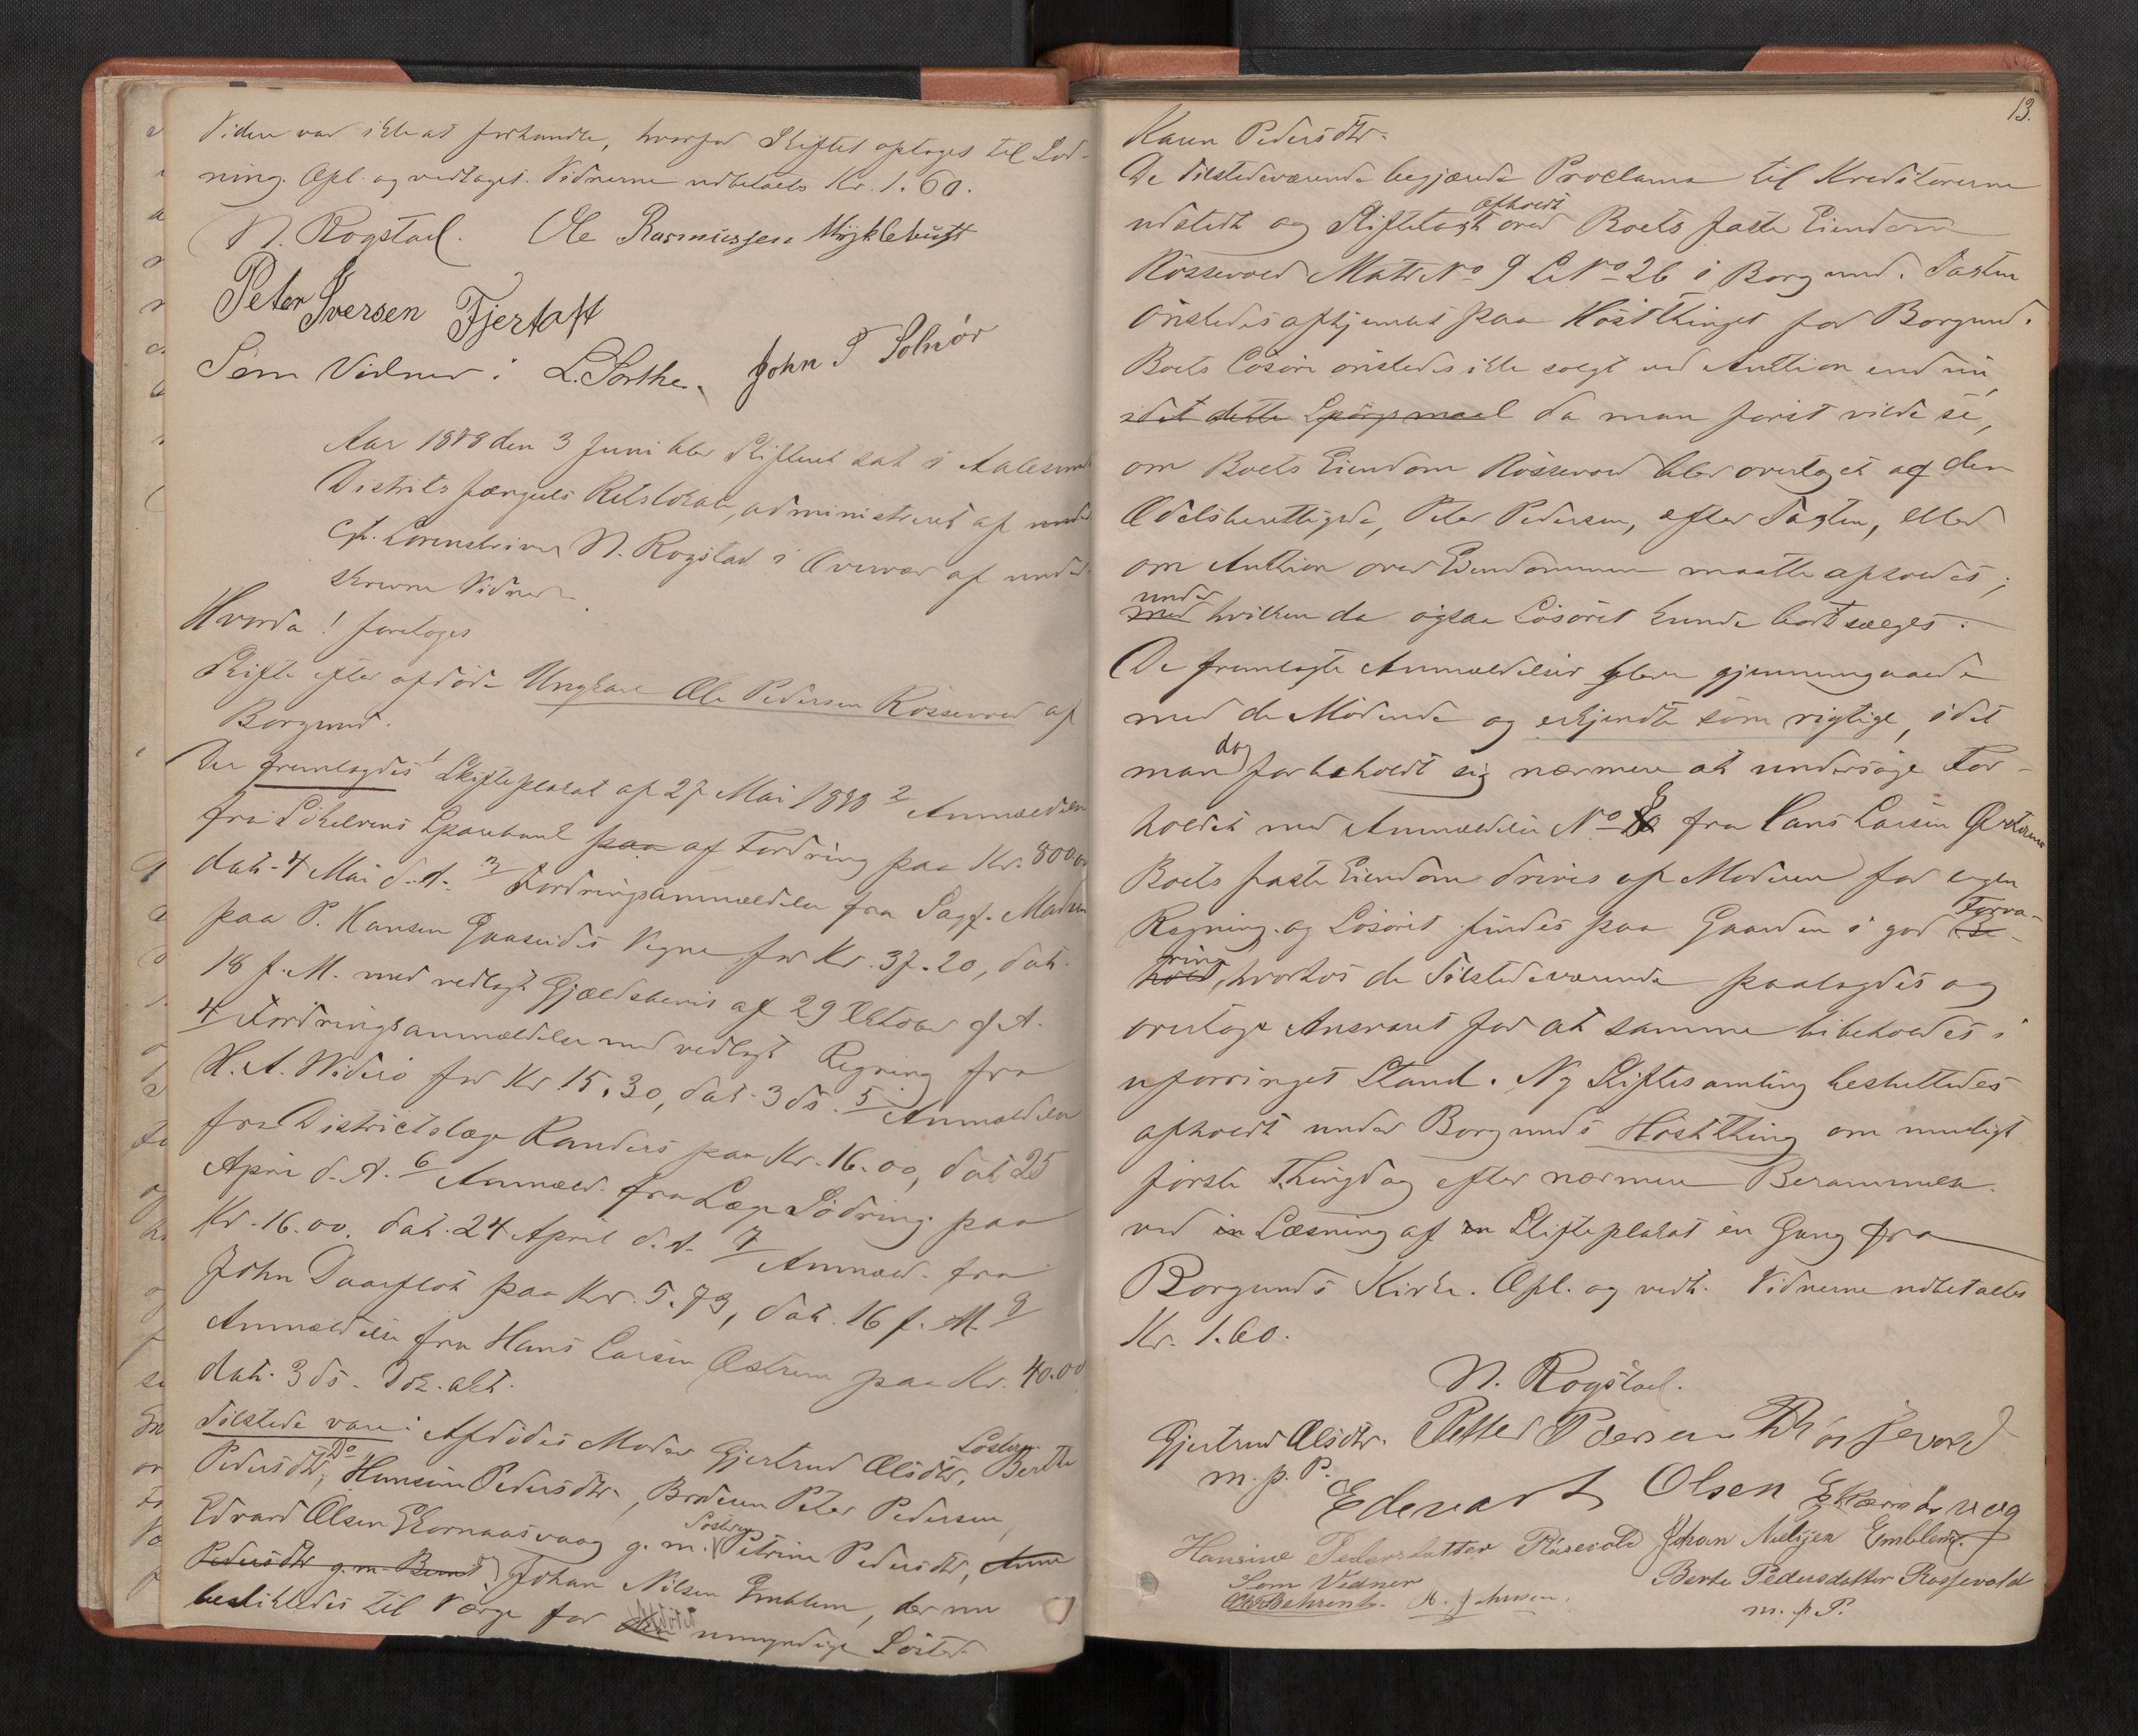 Videre var ikke at forhandle, hvorfor Skiftet optoges til Lod-
ning. Opl. og vedtaget. Vidnerne udbetaltes Kr. 1.60.
N. Rogstad. Ole Rasmussen Myklebust
Peter Iversen Fjertoft
Som Vidner: L. Sorthe. John P Solnör
Aar 1878 den 3 Juni blev Skifteret sat i Aalesunds
Distrikts fængsels Retslokale, administreret af under
Cst. Sorenskriver N. Rogstad i Overvær af under-
skrevne Vidner
Hvorda! foretoges
Skifte efter afdöde Ungkarl Ole Pedersen Rössevold af
Borgund.
Der fremlagdes 1 Skifteplakat af 27 Mai 1878 2 Anmældelse
fra Sökelvens Sparebank paa af Fordring paa Kr. 800.00
dat. 4 Mai d. A. 3/ Fordringsanmældelse fra Sagf. Madsen
paa P. Hansen Gaaseides Vegne for Kr. 37.20, dat.
18 f. M. med vedlagt Gjældsbevis af 29 Oktober f A.
4/ Fordringsanmældelse med vedlagt Regning fra
H. A. Wideró for Kr 15.30, dat. 3 ds. 5/ Anmældelse
fra Districtslæge Randers paa Kr. 16.00, dat 25
April d. A. 6/ Anmæld. fra Læge Södring paa
Kr. 16.00. dat. 24 April d. A. 7/ Anmæld. fra
John Daaeflot paa Kr. 5.73, dat. 16 f. M. 8/
Anmældelse fra Hans Larsen Östrem paa Kr. 40.00
dat. 3 ds. Dok. akt.
Tilstede vare: Afdödes Moder Gjertrud Olsdtr, Söstren Berthe
Pedersdtr, Do Hansine Pedersdtr, Broderen Peter Pedersen,
Edvard Olsen Ekornaasvaag g. m. Söstren Petrine Pedersdtr, Anne
Pedersdtr g. m. Bernt, Johan Nilsen Emblem, der nu
beskikkedes til Værge for den Afdödes umyndige Söster
13.
Karen Pedersdtr.
De Tilstedeværende begjærede Proclama til Kreditorerne
udstedt og Skiftetaxt afholdt over Boets faste Eiendom
Rössevold Matr No 9 L No 26 i Borgund. Taxten
önskedes afhjemlet paa Höstthinget for Borgund.
Boets Lösöre önskedes ikke solgt ved Auktion end nu,
idet dette Spörgsmaal da man först vilde se,
om Boets Eiendom Rössevold blev overtaget af den
Odelsberettigede, Peter Pedersen, efter Taxten, eller
om Auktion over Eiendommen maatte afholdes;
med under hvilken da ogsaa Lösöret kunde bortsælges.
De fremlagte Anmældelser blev gjennemgaaede
med de Mödende og erkjendte som rigtige, idet
man dog forbeholdt sig nærmere at undersöge For-
holdet med Anmældelse No 8 fra Hans Larsen Östrem
Boets faste Eiendom drives af Moderen for egen
Regning og Lösöret findes paa Gaarden i god Be- Forva-
hold, ring hvorhos de Tilstedeværende paalagdes og
overtoge Ansvaret for at samme bibeholdes i
uforringet Stand. Ny Skiftesamling besluttedes
afholdt under Borgunds Höstthing om muligt
förste Thingdag efter nærmere Berammelse
ved in Læsning af en Skifteplakat én Gang fra
Borgunds Kirke. Opl. og vedt. Vidnerne udbetaltes
Kr. 1.60.
N. Rogstad.
Gjertrud Olsdtr. Petter Pedersen Rössevold
m. p. P.
Edevart Olsen Ekornaasvaag
Hansine Pedersdatter Rösevold Johan Nielsen Emblem.
Som Vidner Berte Pedersdatter Rossevold
m. p P.